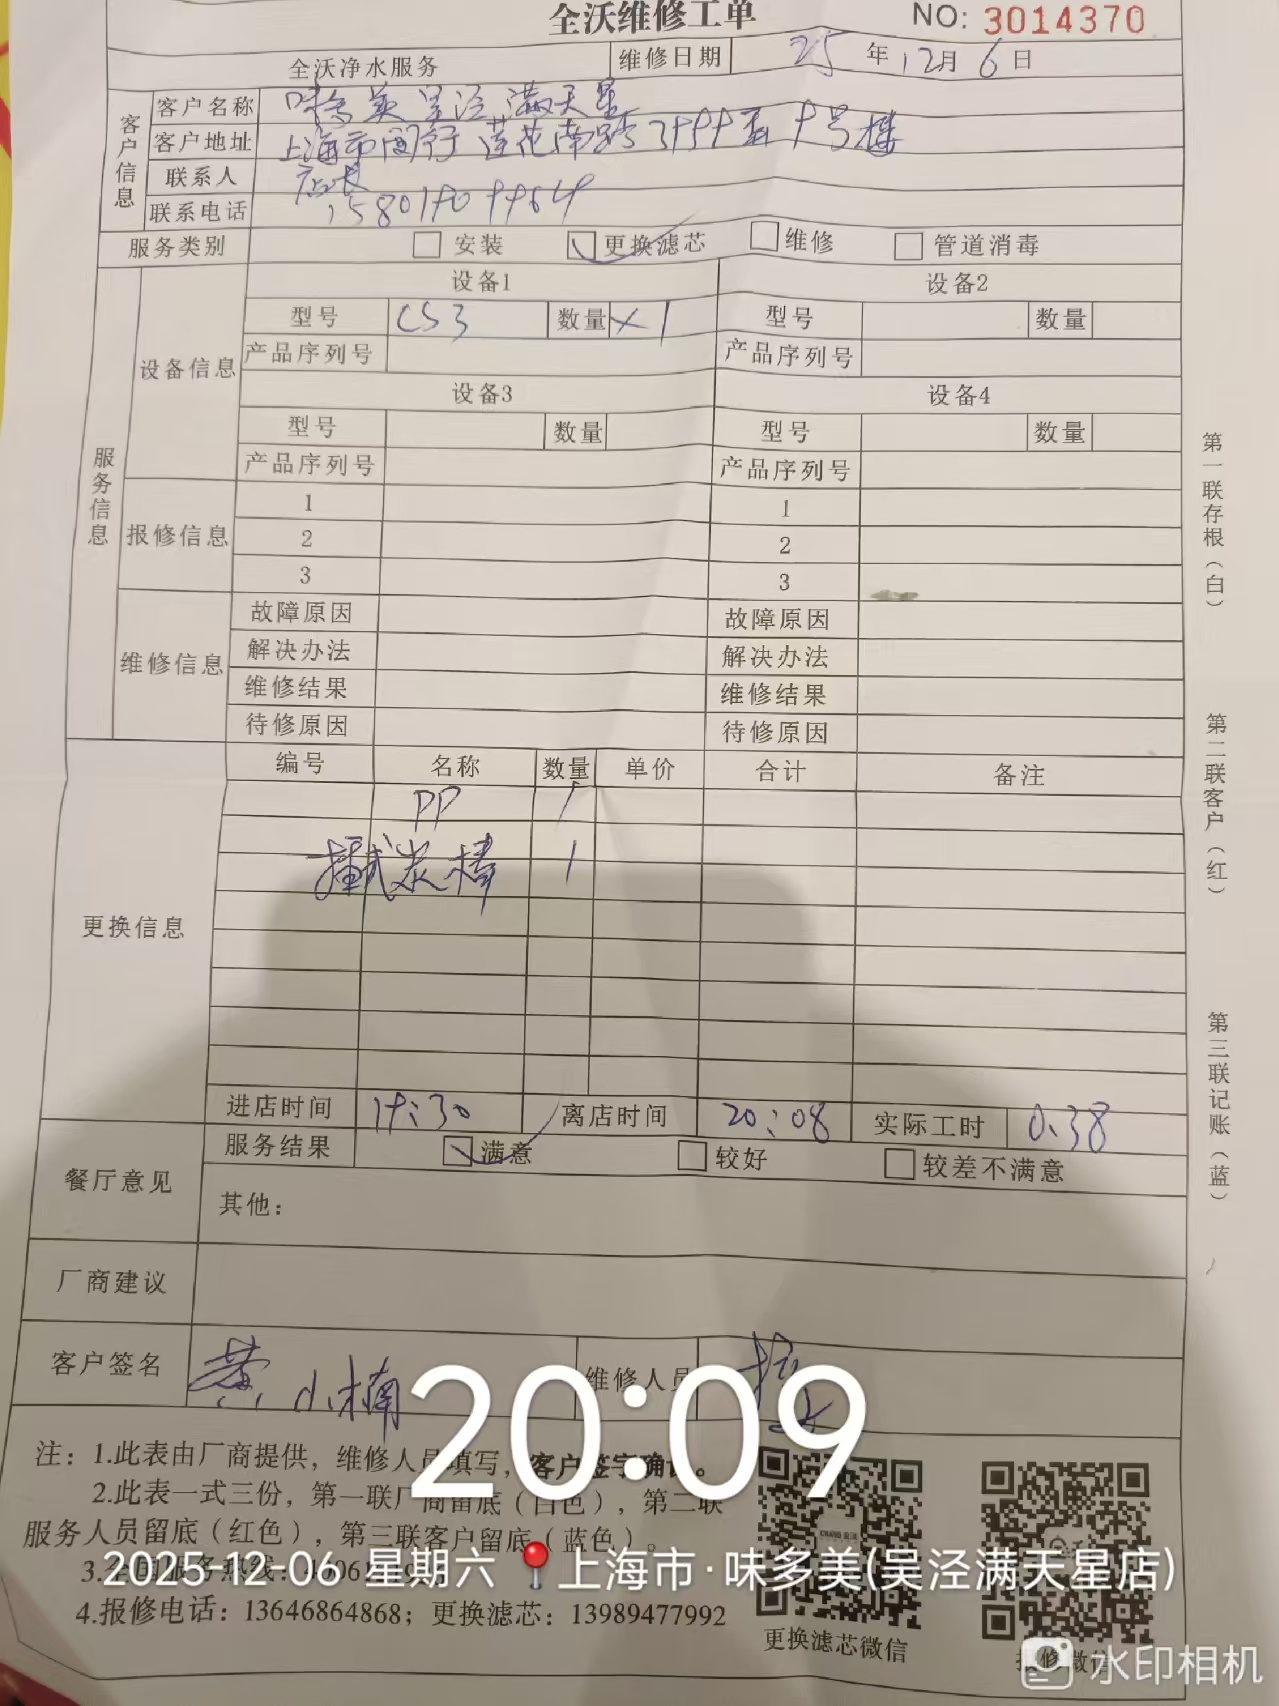 全沃维修工单
NO: 3014370
全沃净水服务 维修日期 25 年 12 月 6 日
客户信息
客户名称 味多美吴泾满天星
客户地址 上海市闵行莲花南路3999弄9号楼
联系人 店长
联系电话
服务类别 安装 更换滤芯 维修 管道消毒
服务信息
设备信息
设备1 设备2
型号 CS3 数量 X1 型号 数量
产品序列号 产品序列号
设备3 设备4
型号 数量 型号 数量
产品序列号 产品序列号
报修信息
1 1
2 2
3 3
维修信息
故障原因 故障原因
解决办法 解决办法
维修结果 维修结果
待修原因 待修原因
更换信息
编号 名称 数量 单价 合计 备注
PP 1
插式炭棒 1
进店时间 19:30 离店时间 20:08 实际工时 0.38
餐厅意见
服务结果 满意 较好 较差不满意
其他：
厂商建议
客户签名 黄小楠 维修人员
注：1.此表由厂商提供，维修人员填写，客户签字确认。
2.此表一式三份，第一联厂商留底（白色），第二联
服务人员留底（红色），第三联客户留底（蓝色）。
3.全国服务热线：
4.报修电话：13646864868；更换滤芯：13989477992
更换滤芯微信
报修微信
第一联存根（白）
第二联客户（红）
第三联记账（蓝）
20:09
2025-12-06 星期六 上海市·味多美(吴泾满天星店)
水印相机